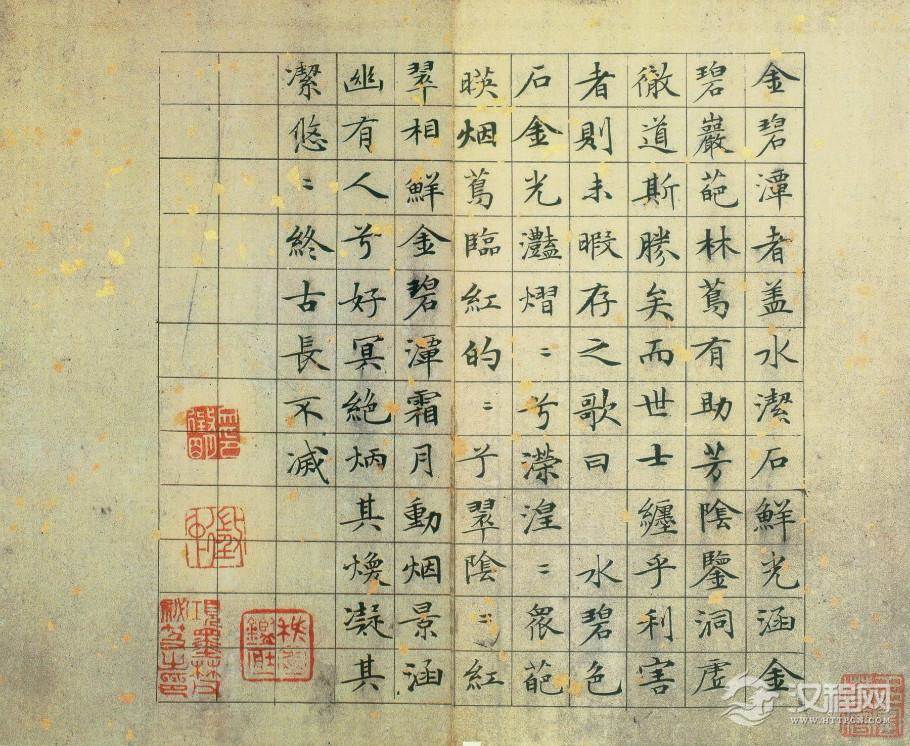 金碧潭者盖水潔石鮮光涵金
碧巖葩林蔦有助芳陰鑒洞虛
徹道斯勝矣而世士纏乎利害
者則未暇存之歌曰 水碧色
石金光灩熠〻兮濴湟〻衆葩
暎烟蔦臨紅的〻兮翠陰〻紅
翠相鮮金碧潭霜月動烟景涵
幽有人兮好冥絶炳其煥凝其
潔悠〻終古長不滅
項墨林父秘笈之印
汉程网
WWW.HTTPCN.COM